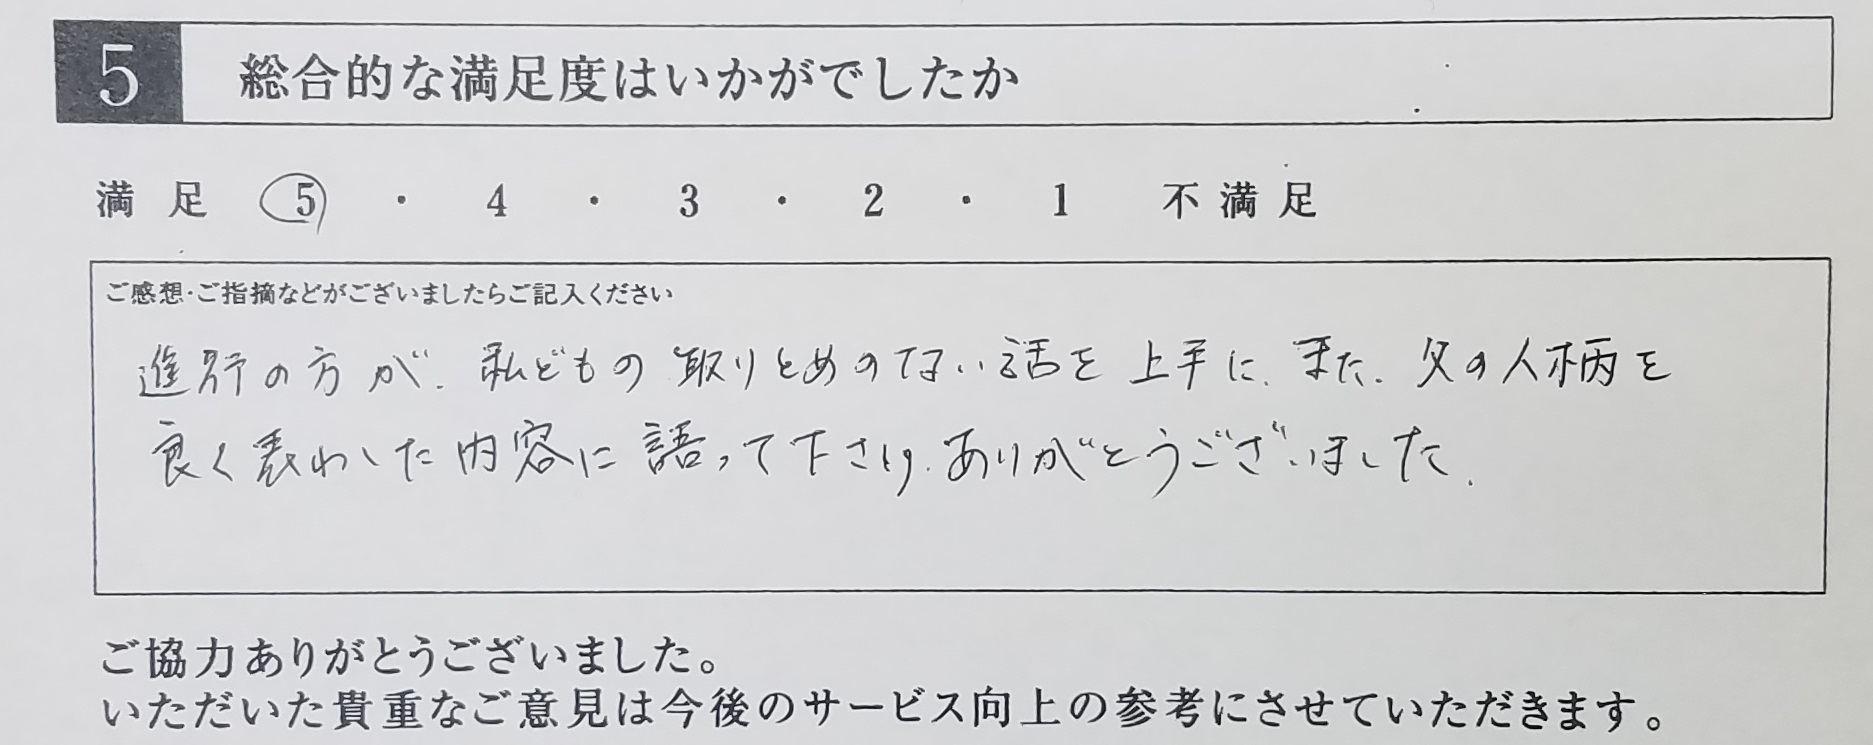 5 総合的な満足度はいかがでしたか
満足 5 ・ 4 ・ 3 ・ 2 ・ 1 不満足
ご感想・ご指摘などがございましたらご記入ください
進行の方が、私どもの取りとめのない話を上手に、また、父の人柄を
良く表わした内容に語って下さり、ありがとうございました。
ご協力ありがとうございました。
いただいた貴重なご意見は今後のサービス向上の参考にさせていただきます。